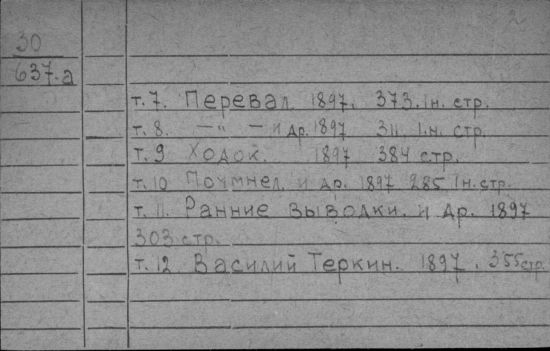 2
30
637.а
т. 7. Перевал. 1897. 373. 1н. стр.
т. 8. — " — и др. 1897 311. 1.н. стр.
т. 9 Ходок. 1897 384 стр.
т. 10 Поумнел. и др. 1897 285 1н. стр.
т. 11. Ранние выводки. и др. 1897
303 стр.
т. 12. Василий Теркин. 1897. 355 стр.